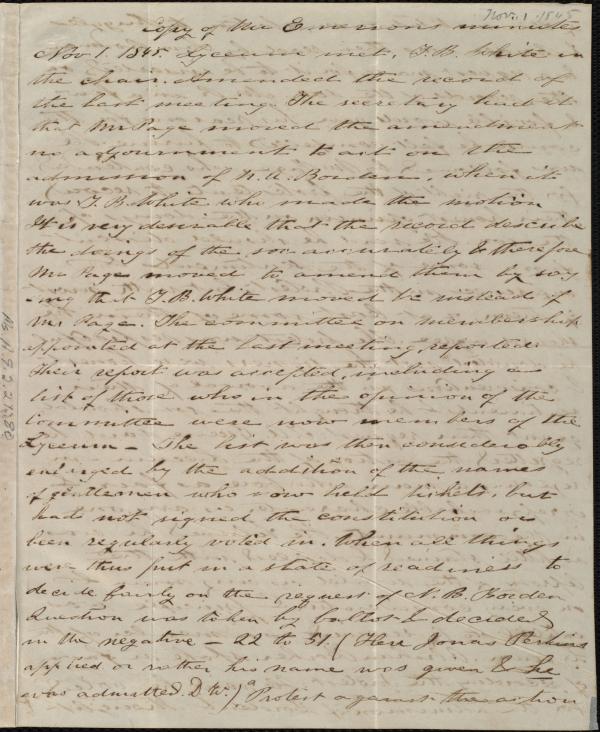 Nov. 1. 1845
Copy of Mr Emersons minutes
Nov 1. 1845. Lyceum met, T. B. White in
the chair. Amended the record of
the last meeting. The secretary had it
that Mr Page moved the amendment
no adjournment to act on the
admission of N. B. Borden, when it
was T. B. White who made the motion
It is very desirable that the record describe
the doings of the soc. accurately & therefore
Mr Page moved to amend them by say
-ing that T. B. White moved &c instead of
Mr Page. The committee on membership
appointed at the last meeting, reported.
Their report was accepted including a
list of those who in the opinion of the
Committee were now members of the
Lyceum – The list was then considerably
enlarged by the addition of the names
of gentlemen who now held tickets, but
had not signed the constitution or
been regularly voted in. When all things
were thus put in a state of readiness to
decide fairly on the request of N. B. Borden
Question was taken by ballot & decided
in the negative – 22 to 51. (Here Jonas Perkins
applied or rather his name was given & he
was admitted. D W.) a Protest against the action
Ms. A. 9. 2. 21.